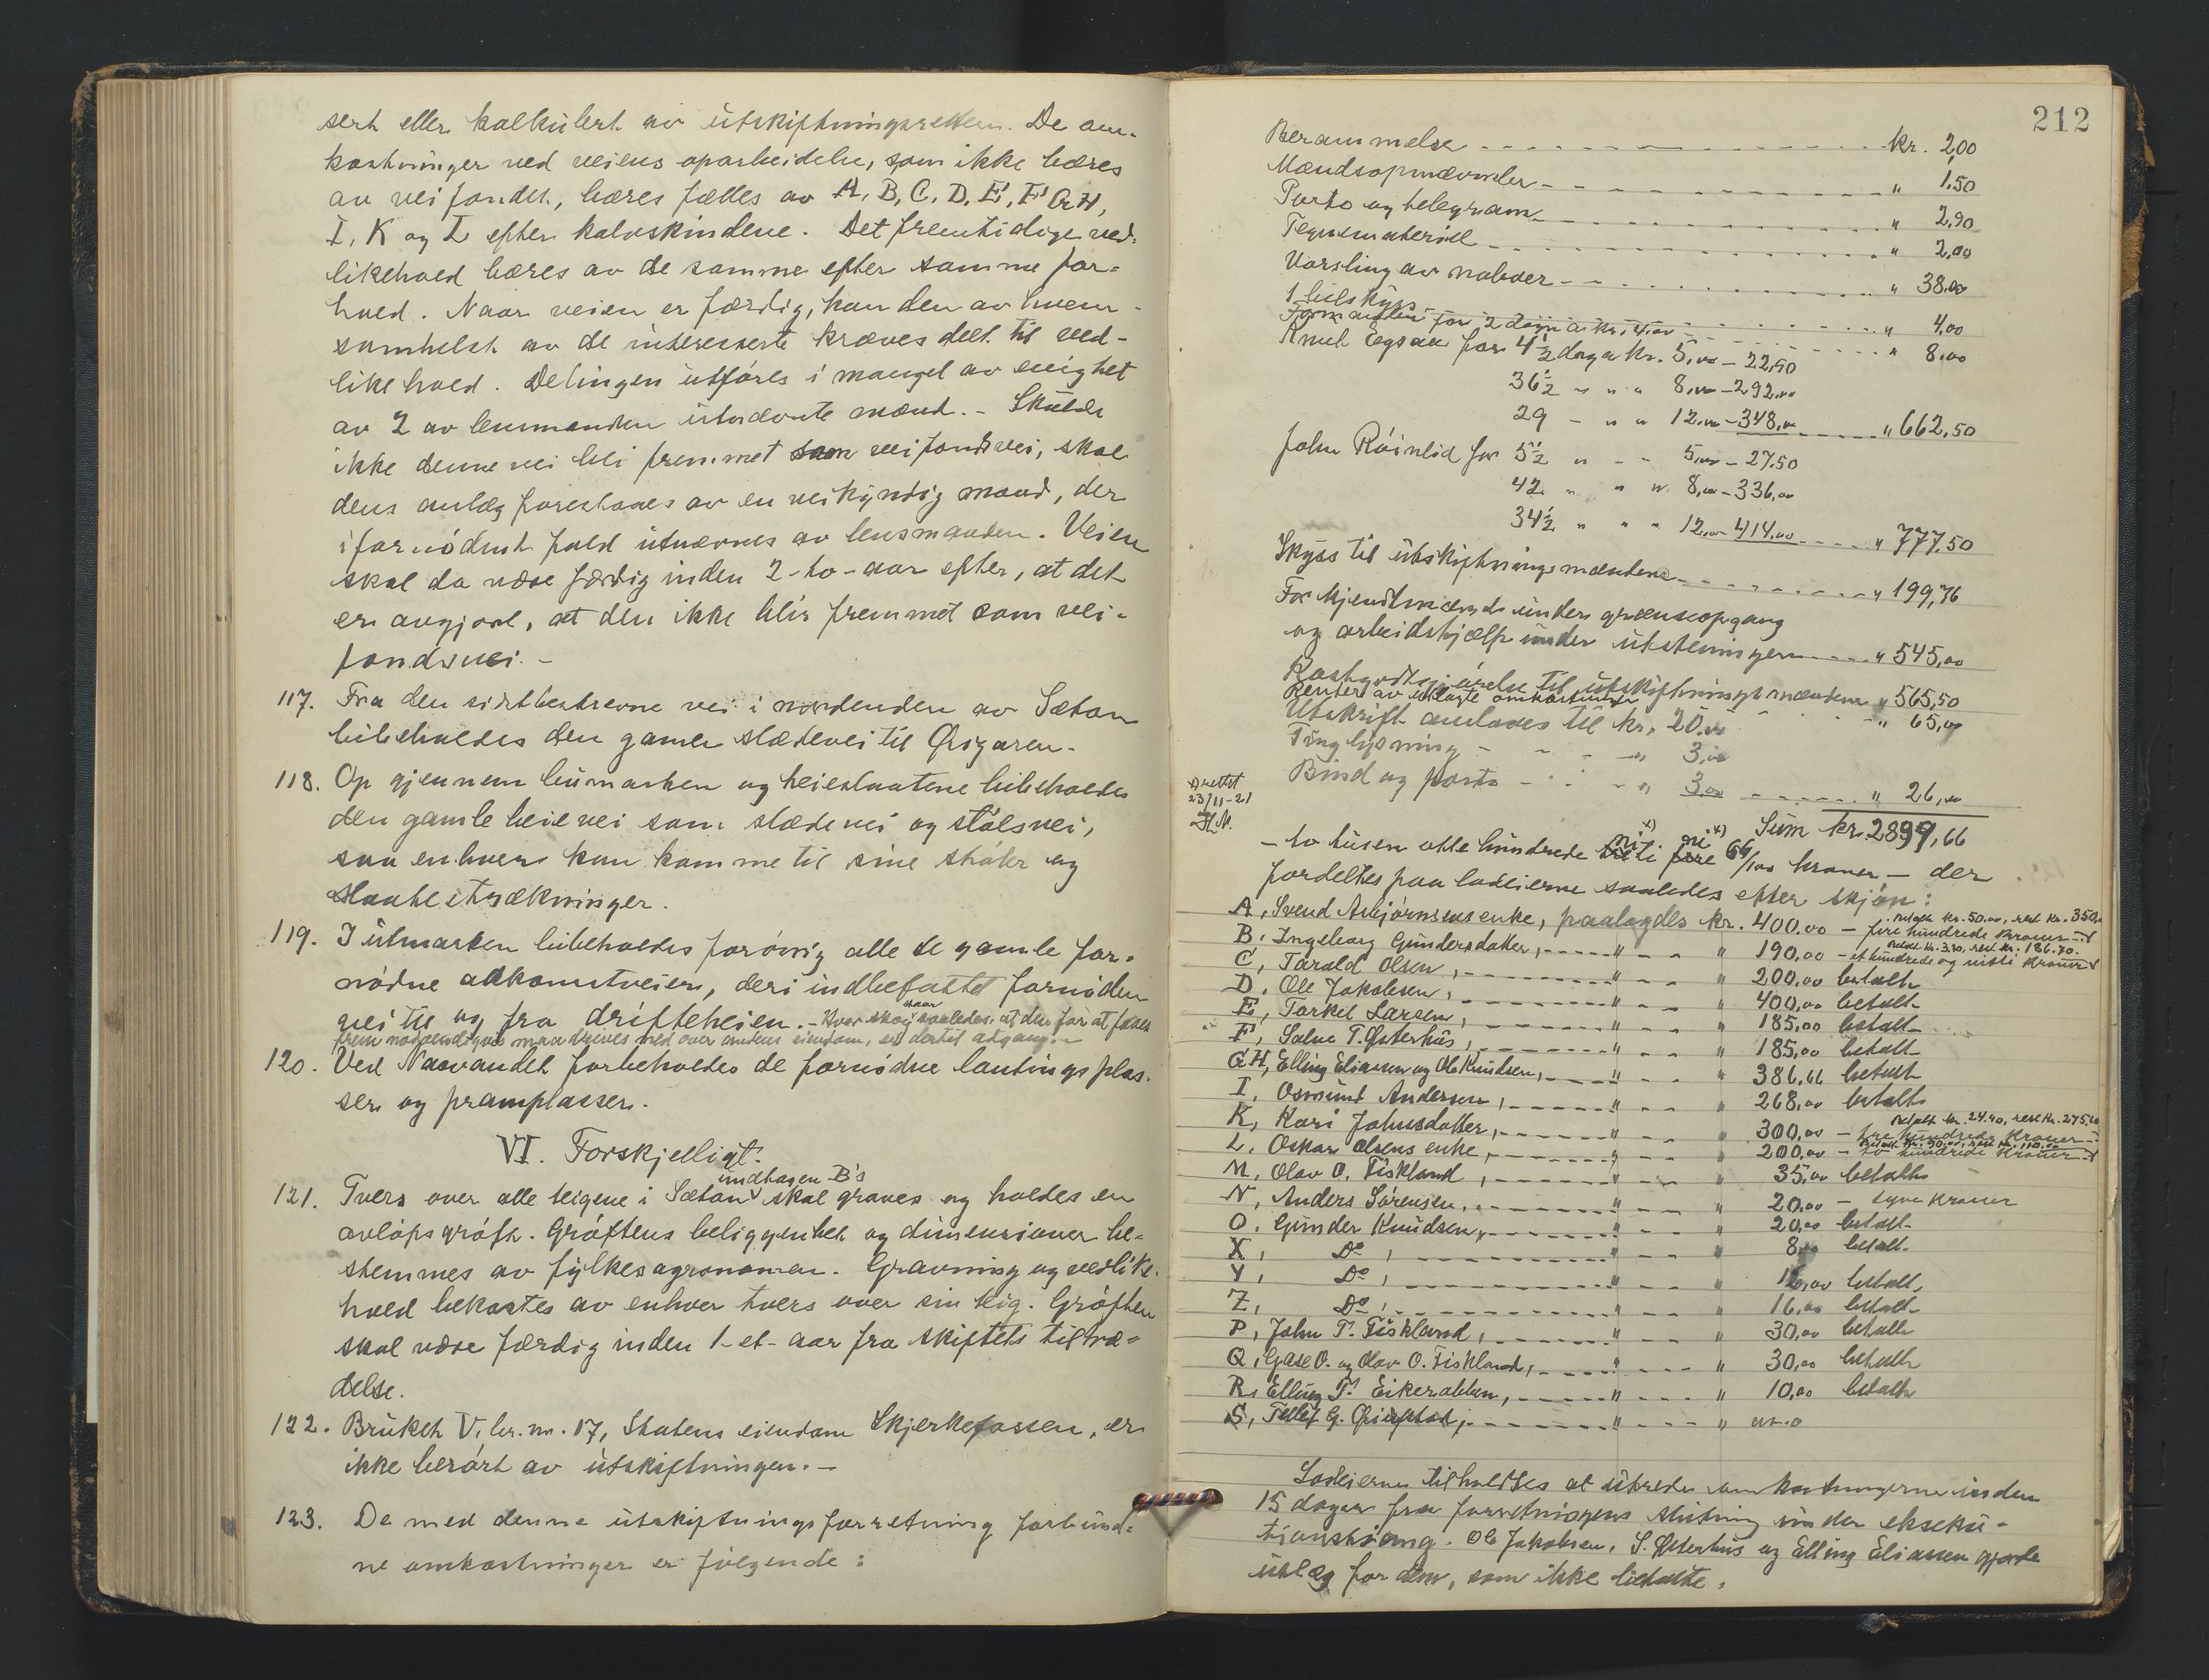 sert eller kalkulert av utskiftningsretten. De om-
kostninger ved veiens oparbeidelse, som ikke bæres
av veifondet, bæres fælles av A, B, C, D, E, F, GH,
I, K og L efter kalvskindene. Det fremtidige ved-
likehold bæres av de samme efter samme for-
hold. Naar veien er færdig, kan den av hvem-
somhelst av de interesserte kræves delt til ved-
likehold. Delingen utføres i mangel av enighet
av 2 av lensmanden utnævnte mænd. - Skulde
ikke denne vei bli fremmet som veifondsvei, skal
dens anlæg forestaaes av en veikyndig mand, der
i fornødent fald utnævnes av lensmanden. Veien
skal da være færdig inden 2-to-aar efter, at det
er avgjort, at den ikke blir fremmet som vei-
fondsvei. -
117. Fra den sidstbeskrevne vei i nordenden av Sætan
bibeholdes den gamle slædevei til
118. Op gjennem bumarken og heieslaatene bibeholdes
den gamle heievei som slædevei og stølsvei,
saa enhver kan komme til sine støler og
slaattestrækninger.
119. I utmarken bibeholdes forøvrig alle de gamle for-
nødne adkomstveier, deri indbefattet fornøden
vei til og fra drifteheien. - Hvor skog saaledes, at den for at føres
frem nødvendigvis maa drives ned over andens eiendom, er dertil adgang. -
120. Ved Naavandet forbeholdes de fornødne lastingsplas-
ser og pramplasser.
VI. Forskjelligt.
indhagen B's
121. Tvers over alle teigene i Sætan skal graves og holdes en
avløpsgrøft. Grøftens beliggenhet og dimensioner be-
stemmes av fylkesagronomen. Gravning og vedlike-
hold bekostes av enhver tvers over sin teig. Grøften
skal være færdig inden 1-et-aar fra skiftets tiltræ-
delse.
122. Bruket V, br. nr. 17, Statens eiendom Skjerkefossen, er
ikke berørt av utskiftningen. -
123. De med denne utskiftningsforretning forbund-
ne omkostninger er følgende:
212
Berammelse - - - kr. 2,00
Mændsopnævnelse - - - " 1,50
Porto og telegram - - - " 2,90
Tegnemateriell - - - " 2,00
Varsling av naboer - - - " 38,00
1 bilskyss - - - " 4,00
Formanden for 2 døgn a kr. 4,00 - - - " 8,00
Knut Egsaa for 4½ dag a kr. 5,00 - 22,50
36½ " " " 8,00 - 292,00
29 - " " 12,00 - 348,00 - - - " 662,50
John Røinlid for 5½ " - - 5,00 - 27,50
42 " " " 8,00 - 336,00
34½ " " " 12,00 - 414,00 - - - " 777,50
Skyss til utskiftningsmændene - - - " 199,76
For kjendtmænd under grænseopgang
og arbeidshjælp under utstikningen - - - " 545,00
Kostgodtgjørelse til utskiftningsmændene " 565,50
Renter av utlagte omkostninger - - - " 65,00
Utskrift anslaaes til kr. 20,00
Tinglysning - - - " 3,00
Bind og porto - - - " 3,00 - - - " 26,00
x) rettet
23/11-21
Sum kr. 2899,66
ni x) ni x)
- to tusen otte hundrede treti fire 66/100 kroner - der
fordeltes paa lodeierne saaledes efter skjøn:
betalt kr. 50.00, rest kr. 350.
A, Svend Asbjørnsens enke, paalagdes kr. 400.00 - fire hundrede kroner
betalt kr. 3.30, rest kr. 186.70.
B, Ingeborg Gundersdatter, - - - " 190,00 - et hundrede og nitti kroner
C, Tarald Olsen, - - - " 200,00 betalt
D, Ole Jakobsen, - - - " 400,00 betalt
E, Torkel Larsen, - - - " 185,00 betalt
F, Salve T. Østerhus, - - - " 185,00 betalt
GH, Elling Eliassen og Ole Knudsen, - - - " 386,66 betalt
I, Osmund Andersen, - - - " 268,00 betalt
betalt kr. 24.40, rest kr. 275.60
K, Kari Johnsdatter, - - - " 300,00 - tre hundrede kroner
betalt kr. 90.00, rest kr. 110.00
L, Oskar Olsens enke, - - - " 200,00 - to hundrede kroner
M, Olav O. Fiskland, - - - " 35,00 betalt
N, Anders Sørensen, - - - " 20,00 - tyve kroner
O, Gunder Knudsen, - - - " 20,00 betalt
X, Do, - - - " 8,00 betalt
Y, Do, - - - " 16,00 betalt
Z, Do, - - - " 16,00 betalt
P, John T. Fiskland, - - - " 30,00 betalt
Q, Gase O. og Olav O. Fiskland, - - - " 30,00 betalt
R, Elling T. Eikerabben, - - - " 10,00 betalt
S, Tellef G. - - - "
Lodeierne tilholdtes at utrede omkostningerne inden
15 dager fra forretningens slutning under ekseku-
tionstvang. Ole Jakobsen, S. Østerhus og Elling Eliassen gjorde
utlæg for dem, som ikke betalte.